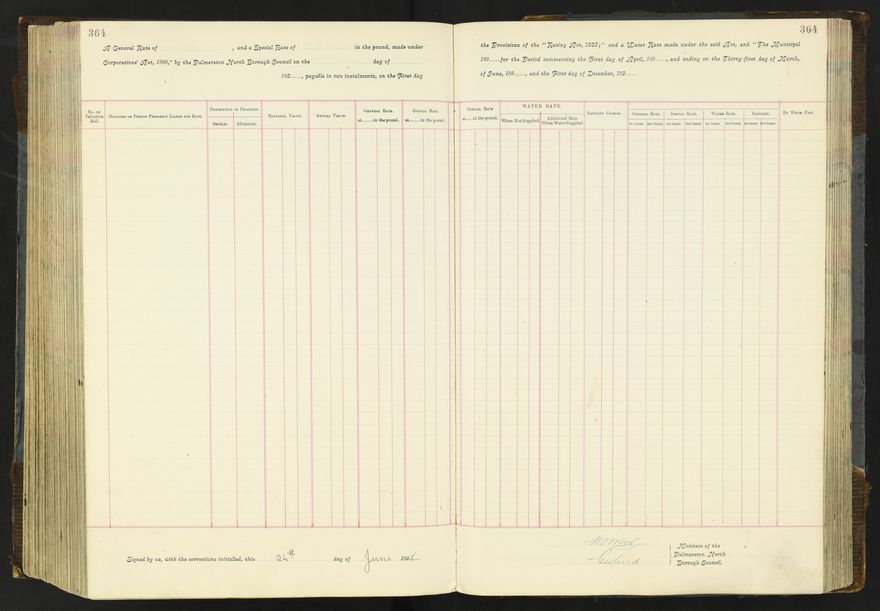 364
364
A General Rate of , and a Special Rate of in the pound, made under
Corporations' Act, 1886," by the Palmerston North Borough Council on the day of
189 , payable in two instalments, on the First day
the Provisions of the "Rating Act, 1882;" and a Water Rate made under the said Act, and "The Municipal
189 for the Period commencing the First day of April, 189 , and ending on the Thirty-first day of March,
of June, 189 , and the First day of December, 189
No. on Valuation Roll.
Occupier or Person Primarily Liable for Rate.
Description of Property.
Section. Allotment.
Rateable Value.
Annual Value.
General Rate
at in the pound.
Special Rate
at in the pound.
Special Rate
at in the pound.
WATER RATE.
When Not Supplied.
Additional Rate When Water Supplied.
Sanitary Charge.
General Rate. Special Rate. Water Rate. Sanitary.
1st Instal. 2nd Instal. 1st Instal. 2nd Instal. 1st Instal. 2nd Instal. 1st Instal. 2nd Instal.
By Whom Paid.
Signed by us, with the corrections initialled, this 24th day of June 1895
Members of the
Palmerston North
Borough Council.